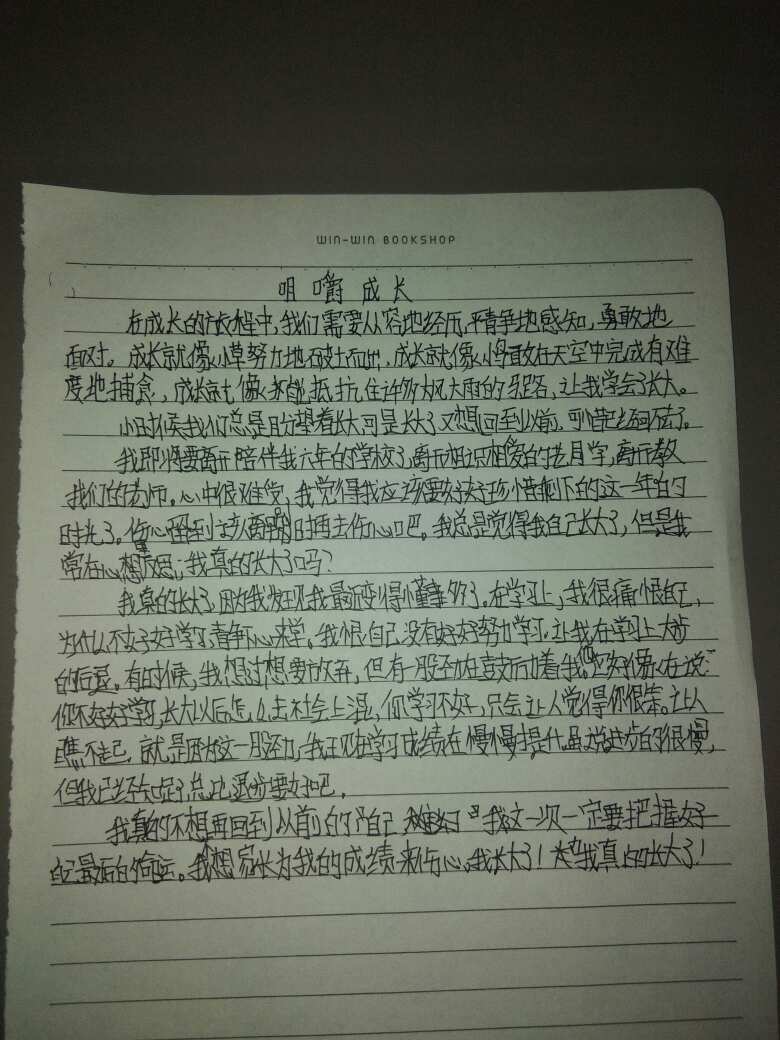 WIN-WIN BOOKSHOP
咀嚼成长
在成长的旅程中,我们需要从容地经历,平静地感知,勇敢地
面对。成长就像小草努力地破土而出,成长就像小鸟敢在天空中完成有难
度地捕食,成长就像能抵抗住许多大风大雨的,让我学会了长大。
小时候我们总是盼望着长大可是长大了又想回到以前,可惜回不去了。
我即将要离开陪伴我六年的学校了,离开相识相爱的老同学,离开教
我们的老师。心中很难受,我觉得我应该要好好珍惜剩下的这一年的
时光了。伤心留到该离开时再去伤心吧。我总是觉得我自己长大了,但是我
常在心里反思:我真的长大了吗?
我真的长大了,因为我发现我最近变得懂事多了。在学习上,我很痛恨自己,
为什么不好好学习静下心来学。我恨自己没有好好努力学习,让我在学习上大步
的后退。有时候,我想过想要放弃,但有一股劲在鼓励着我。好像在说:
你不好好学习,长大以后怎么去社会上混,你学习不好,只会让人觉得你很笨。让人
瞧不起。就是因为这一股劲,我现在学习成绩在慢慢提升,虽说进步的很慢,
但我已经知足了总比退步要好吧。
我真的不想再回到以前的自己,我这一次一定要把握好
自己最后的命运。我想家长为我的成绩来伤心,我长大了!我真的长大了!